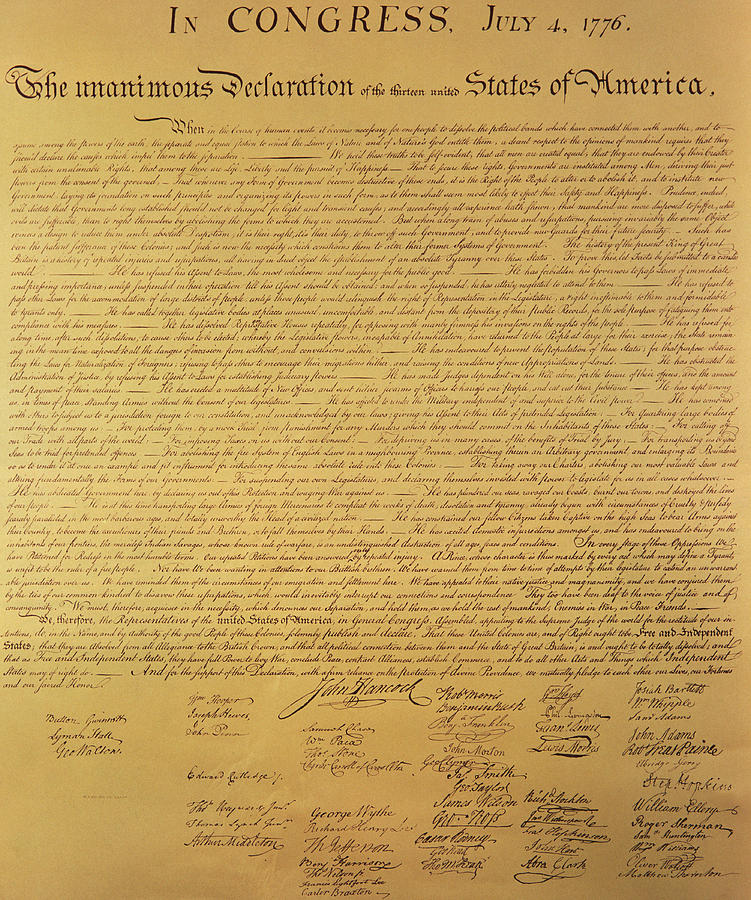 IN CONGRESS, JULY 4, 1776.
The unanimous Declaration of the thirteen united States of America,
When in the Course of human events it becomes necessary for one people to dissolve the political bands which have connected them with another, and to
assume among the powers of the earth, the separate and equal station to which the Laws of Nature and of Nature's God entitle them, a decent respect to the opinions of mankind requires that they
should declare the causes which impel them to the separation. — We hold these truths to be self-evident, that all men are created equal, that they are endowed by their Creator
with certain unalienable Rights, that among these are Life, Liberty and the pursuit of Happiness. — That to secure these rights, Governments are instituted among Men, deriving their just
powers from the consent of the governed, — That whenever any Form of Government becomes destructive of these ends, it is the Right of the People to alter or to abolish it, and to institute new
Government, laying its foundation on such principles and organizing its powers in such form, as to them shall seem most likely to effect their Safety and Happiness. Prudence, indeed,
will dictate that Governments long established should not be changed for light and transient causes; and accordingly all experience hath shewn, that mankind are more disposed to suffer, while
evils are sufferable, than to right themselves by abolishing the forms to which they are accustomed. But when a long train of abuses and usurpations, pursuing invariably the same Object
evinces a design to reduce them under absolute Despotism, it is their right, it is their duty, to throw off such Government, and to provide new Guards for their future security. — Such has
been the patient sufferance of these Colonies; and such is now the necessity which constrains them to alter their former Systems of Government. The history of the present King of Great
Britain is a history of repeated injuries and usurpations, all having in direct object the establishment of an absolute Tyranny over these States. To prove this, let Facts be submitted to a candid
world. — He has refused his Assent to Laws, the most wholesome and necessary for the public good. — He has forbidden his Governors to pass Laws of immediate
and pressing importance, unless suspended in their operation till his Assent should be obtained; and when so suspended, he has utterly neglected to attend to them. — He has refused to
pass other Laws for the accommodation of large districts of people, unless those people would relinquish the right of Representation in the Legislature, a right inestimable to them and formidable
to tyrants only. — He has called together legislative bodies at places unusual, uncomfortable, and distant from the depository of their Public Records, for the sole purpose of fatiguing them into
compliance with his measures. — He has dissolved Representative Houses repeatedly, for opposing with manly firmness his invasions on the rights of the people. — He has refused for
a long time, after such dissolutions, to cause others to be elected; whereby the Legislative powers, incapable of Annihilation, have returned to the People at large for their exercise; the State remain-
ing in the mean time exposed to all the dangers of invasion from without, and convulsions within. — He has endeavoured to prevent the population of these States; for that purpose obstruc-
ting the Laws for Naturalization of Foreigners; refusing to pass others to encourage their migrations hither, and raising the conditions of new Appropriations of Lands. — He has obstructed the
Administration of Justice, by refusing his Assent to Laws for establishing Judiciary powers. — He has made Judges dependent on his Will alone, for the tenure of their offices, and the amount
and payment of their salaries. — He has erected a multitude of New Offices, and sent hither swarms of Officers to harrass our people, and eat out their substance. — He has kept among
us, in times of peace, Standing Armies without the Consent of our legislatures. — He has affected to render the Military independent of and superior to the Civil power. — He has combined
with others to subject us to a jurisdiction foreign to our constitution, and unacknowledged by our laws; giving his Assent to their Acts of pretended Legislation: — For Quartering large bodies of
armed troops among us: — For protecting them, by a mock Trial, from punishment for any Murders which they should commit on the Inhabitants of these States: — For cutting off
our Trade with all parts of the world: — For imposing Taxes on us without our Consent: — For depriving us in many cases, of the benefits of Trial by Jury: — For transporting us beyond
Seas to be tried for pretended offences — For abolishing the free System of English Laws in a neighbouring Province, establishing therein an Arbitrary government, and enlarging its Boundaries
so as to render it at once an example and fit instrument for introducing the same absolute rule into these Colonies: — For taking away our Charters, abolishing our most valuable Laws, and
altering fundamentally the Forms of our Governments: — For suspending our own Legislatures, and declaring themselves invested with power to legislate for us in all cases whatsoever. —
He has abdicated Government here, by declaring us out of his Protection and waging War against us. — He has plundered our seas, ravaged our Coasts, burnt our towns, and destroyed the lives
of our people. — He is at this time transporting large Armies of foreign Mercenaries to compleat the works of death, desolation and tyranny, already begun with circumstances of Cruelty & perfidy
scarcely paralleled in the most barbarous ages, and totally unworthy the Head of a civilized nation. — He has constrained our fellow Citizens taken Captive on the high Seas to bear Arms against
their Country, to become the executioners of their friends and Brethren, or to fall themselves by their Hands. — He has excited domestic insurrections amongst us, and has endeavoured to bring on the
inhabitants of our frontiers, the merciless Indian Savages, whose known rule of warfare, is an undistinguished destruction of all ages, sexes and conditions. In every stage of these Oppressions We
have Petitioned for Redress in the most humble terms: Our repeated Petitions have been answered only by repeated injury. A Prince, whose character is thus marked by every act which may define a Tyrant,
is unfit to be the ruler of a free people. Nor have We been wanting in attentions to our Brittish brethren. We have warned them from time to time of attempts by their legislature to extend an unwarrant-
able jurisdiction over us. We have reminded them of the circumstances of our emigration and settlement here. We have appealed to their native justice and magnanimity, and we have conjured them
by the ties of our common kindred to disavow these usurpations, which, would inevitably interrupt our connections and correspondence. They too have been deaf to the voice of justice and of
consanguinity. We must, therefore, acquiesce in the necessity, which denounces our Separation, and hold them, as we hold the rest of mankind, Enemies in War, in Peace Friends. —
We, therefore, the Representatives of the united States of America, in General Congress, Assembled, appealing to the Supreme Judge of the world for the rectitude of our in-
tentions, do, in the Name, and by Authority of the good People of these Colonies, solemnly publish and declare, That these United Colonies are, and of Right ought to be Free and Independent
States; that they are Absolved from all Allegiance to the British Crown, and that all political connection between them and the State of Great Britain, is and ought to be totally dissolved; and
that as Free and Independent States, they have full Power to levy War, conclude Peace, contract Alliances, establish Commerce, and to do all other Acts and Things which Independent
States may of right do. — And for the support of this Declaration, with a firm reliance on the protection of divine Providence, we mutually pledge to each other our Lives, our Fortunes
and our sacred Honor.
Button Gwinnett
Lyman Hall
Geo Walton.
Wm Hooper
Joseph Hewes,
John Penn
Edward Rutledge /.
Thos Heyward Junr.
Thomas Lynch Junr.
Arthur Middleton
John Hancock
Samuel Chase
Wm Paca
Thos Stone
Charles Carroll of Carrollton
George Wythe
Richard Henry Lee
Th Jefferson
Benj Harrison
Thos Nelson jr.
Francis Lightfoot Lee
Carter Braxton
Robt Morris
Benjamin Rush
Benj Franklin
John Morton
Geo Clymer
Jas Smith
Geo Taylor
James Wilson
Geo Ross
Caesar Rodney
Geo Read
Tho M:Kean
Phil. Livingston
Frans Lewis
Lewis Morris
Richd Stockton
Jno Witherspoon
Fras Hopkinson
John Hart
Abra Clark
Josiah Bartlett
Wm Whipple
Saml Adams
John Adams
Robt Treat Paine
Elbridge Gerry
Step Hopkins
William Ellery
Roger Sherman
Saml Huntington
Wm Williams
Oliver Wolcott
Matthew Thornton